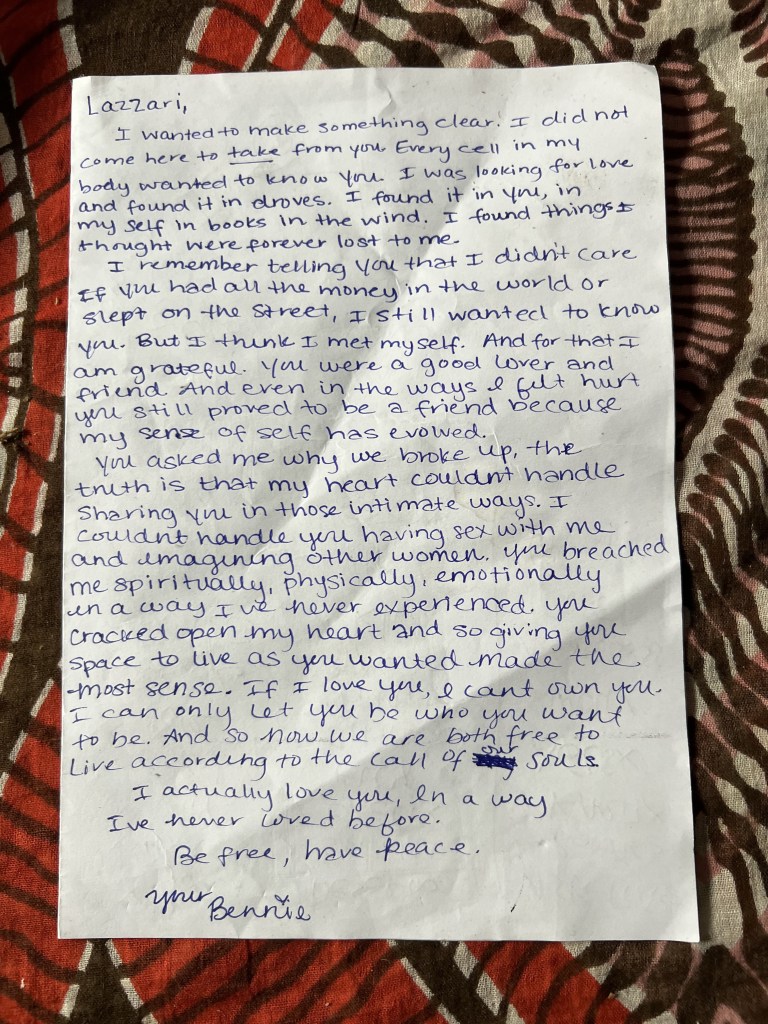 Lazzari,
I wanted to make something clear. I did not
come here to take from you. Every cell in my
body wanted to know you. I was looking for love
and found it in droves. I found it in you, in
my self in books in the wind. I found things I
thought were forever lost to me.
I remember telling you that I didn't care
If you had all the money in the world or
slept on the street, I still wanted to know
you. But I think I met myself. And for that I
am grateful. You were a good lover and
friend. And even in the ways I felt hurt
you still proved to be a friend because
my sense of self has evolved.
You asked me why we broke up, the
truth is that my heart couldnt handle
Sharing you in those intimate ways. I
couldnt handle you having sex with me
and imagining other women. You breached
me spiritually, physically, emotionally
in a way I've never experienced. You
cracked open my heart and so giving you
space to live as you wanted made the
most sense. If I love you, I cant own you.
I can only let you be who you want
to be. And so now we are both free to
Live according to the call of our souls.
I actually love you, In a way
I've never loved before.
Be free, have peace.
your
Bennie